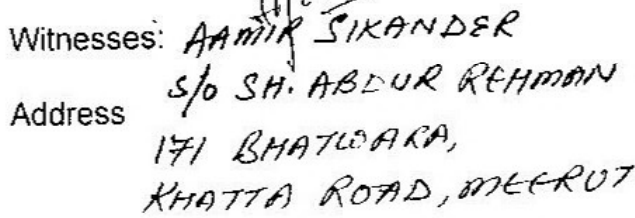 Witnesses: AAMIR SIKANDER
S/o SH. ABDUR REHMAN
Address
171 BHATWARA,
KHATTA ROAD, MEERUT